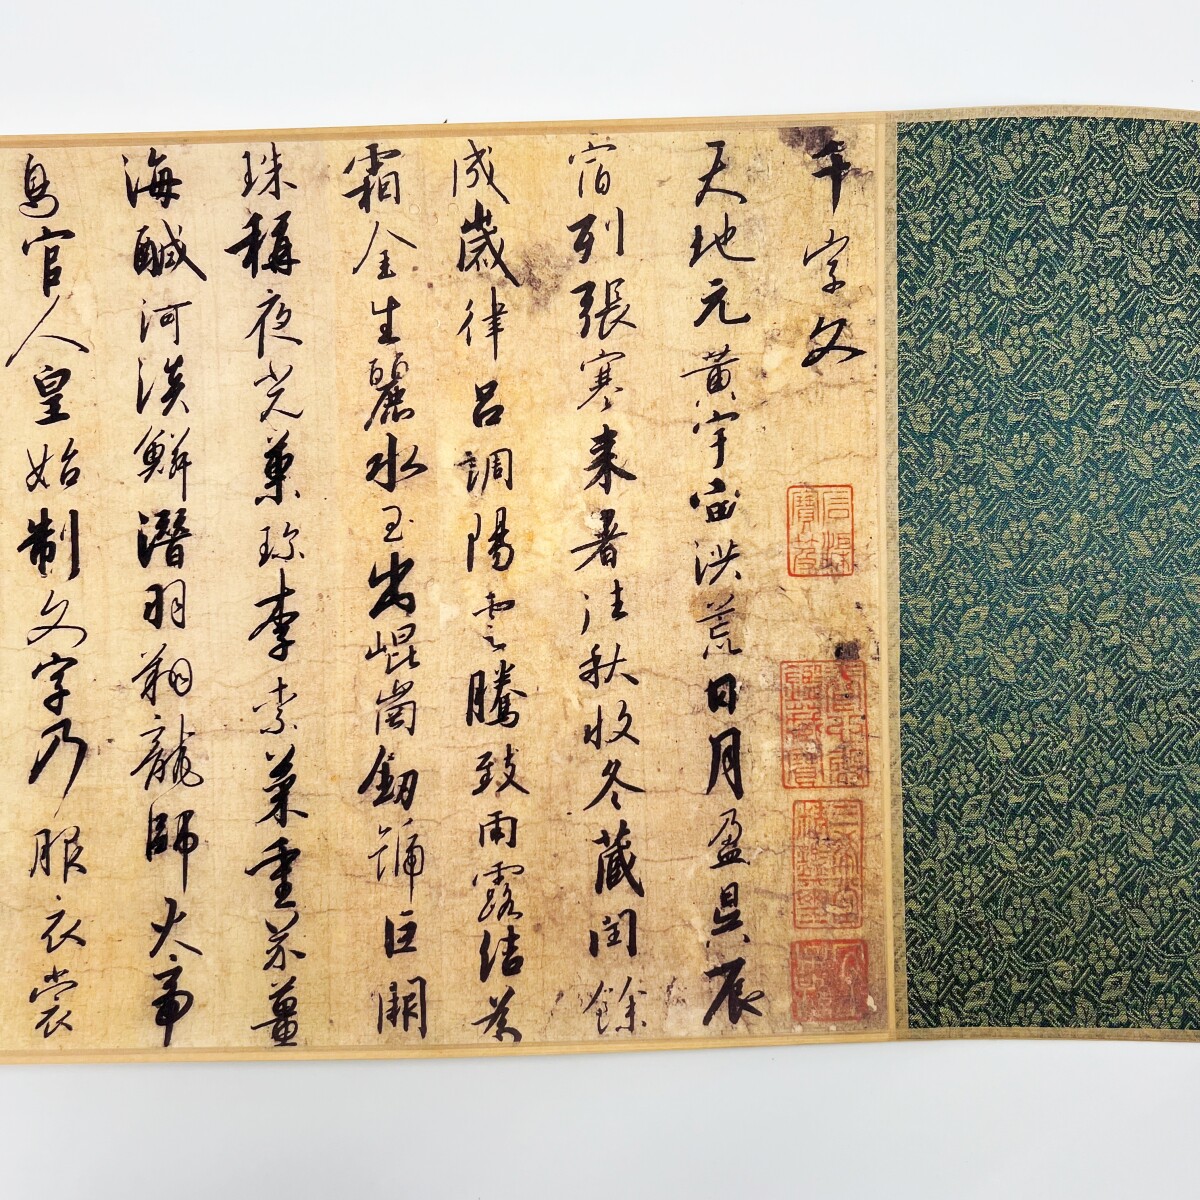 千字文
天地元黄宇宙洪荒日月盈昃辰
宿列張寒来暑往秋收冬藏閏餘
成歲律呂調陽雲騰致雨露結為
霜金生麗水玉出崐崗劒號巨闕
珠稱夜光菓珍李柰菜重芥薑
海鹹河淡鱗潛羽翔龍師火帝
鳥官人皇始制文字乃服衣裳